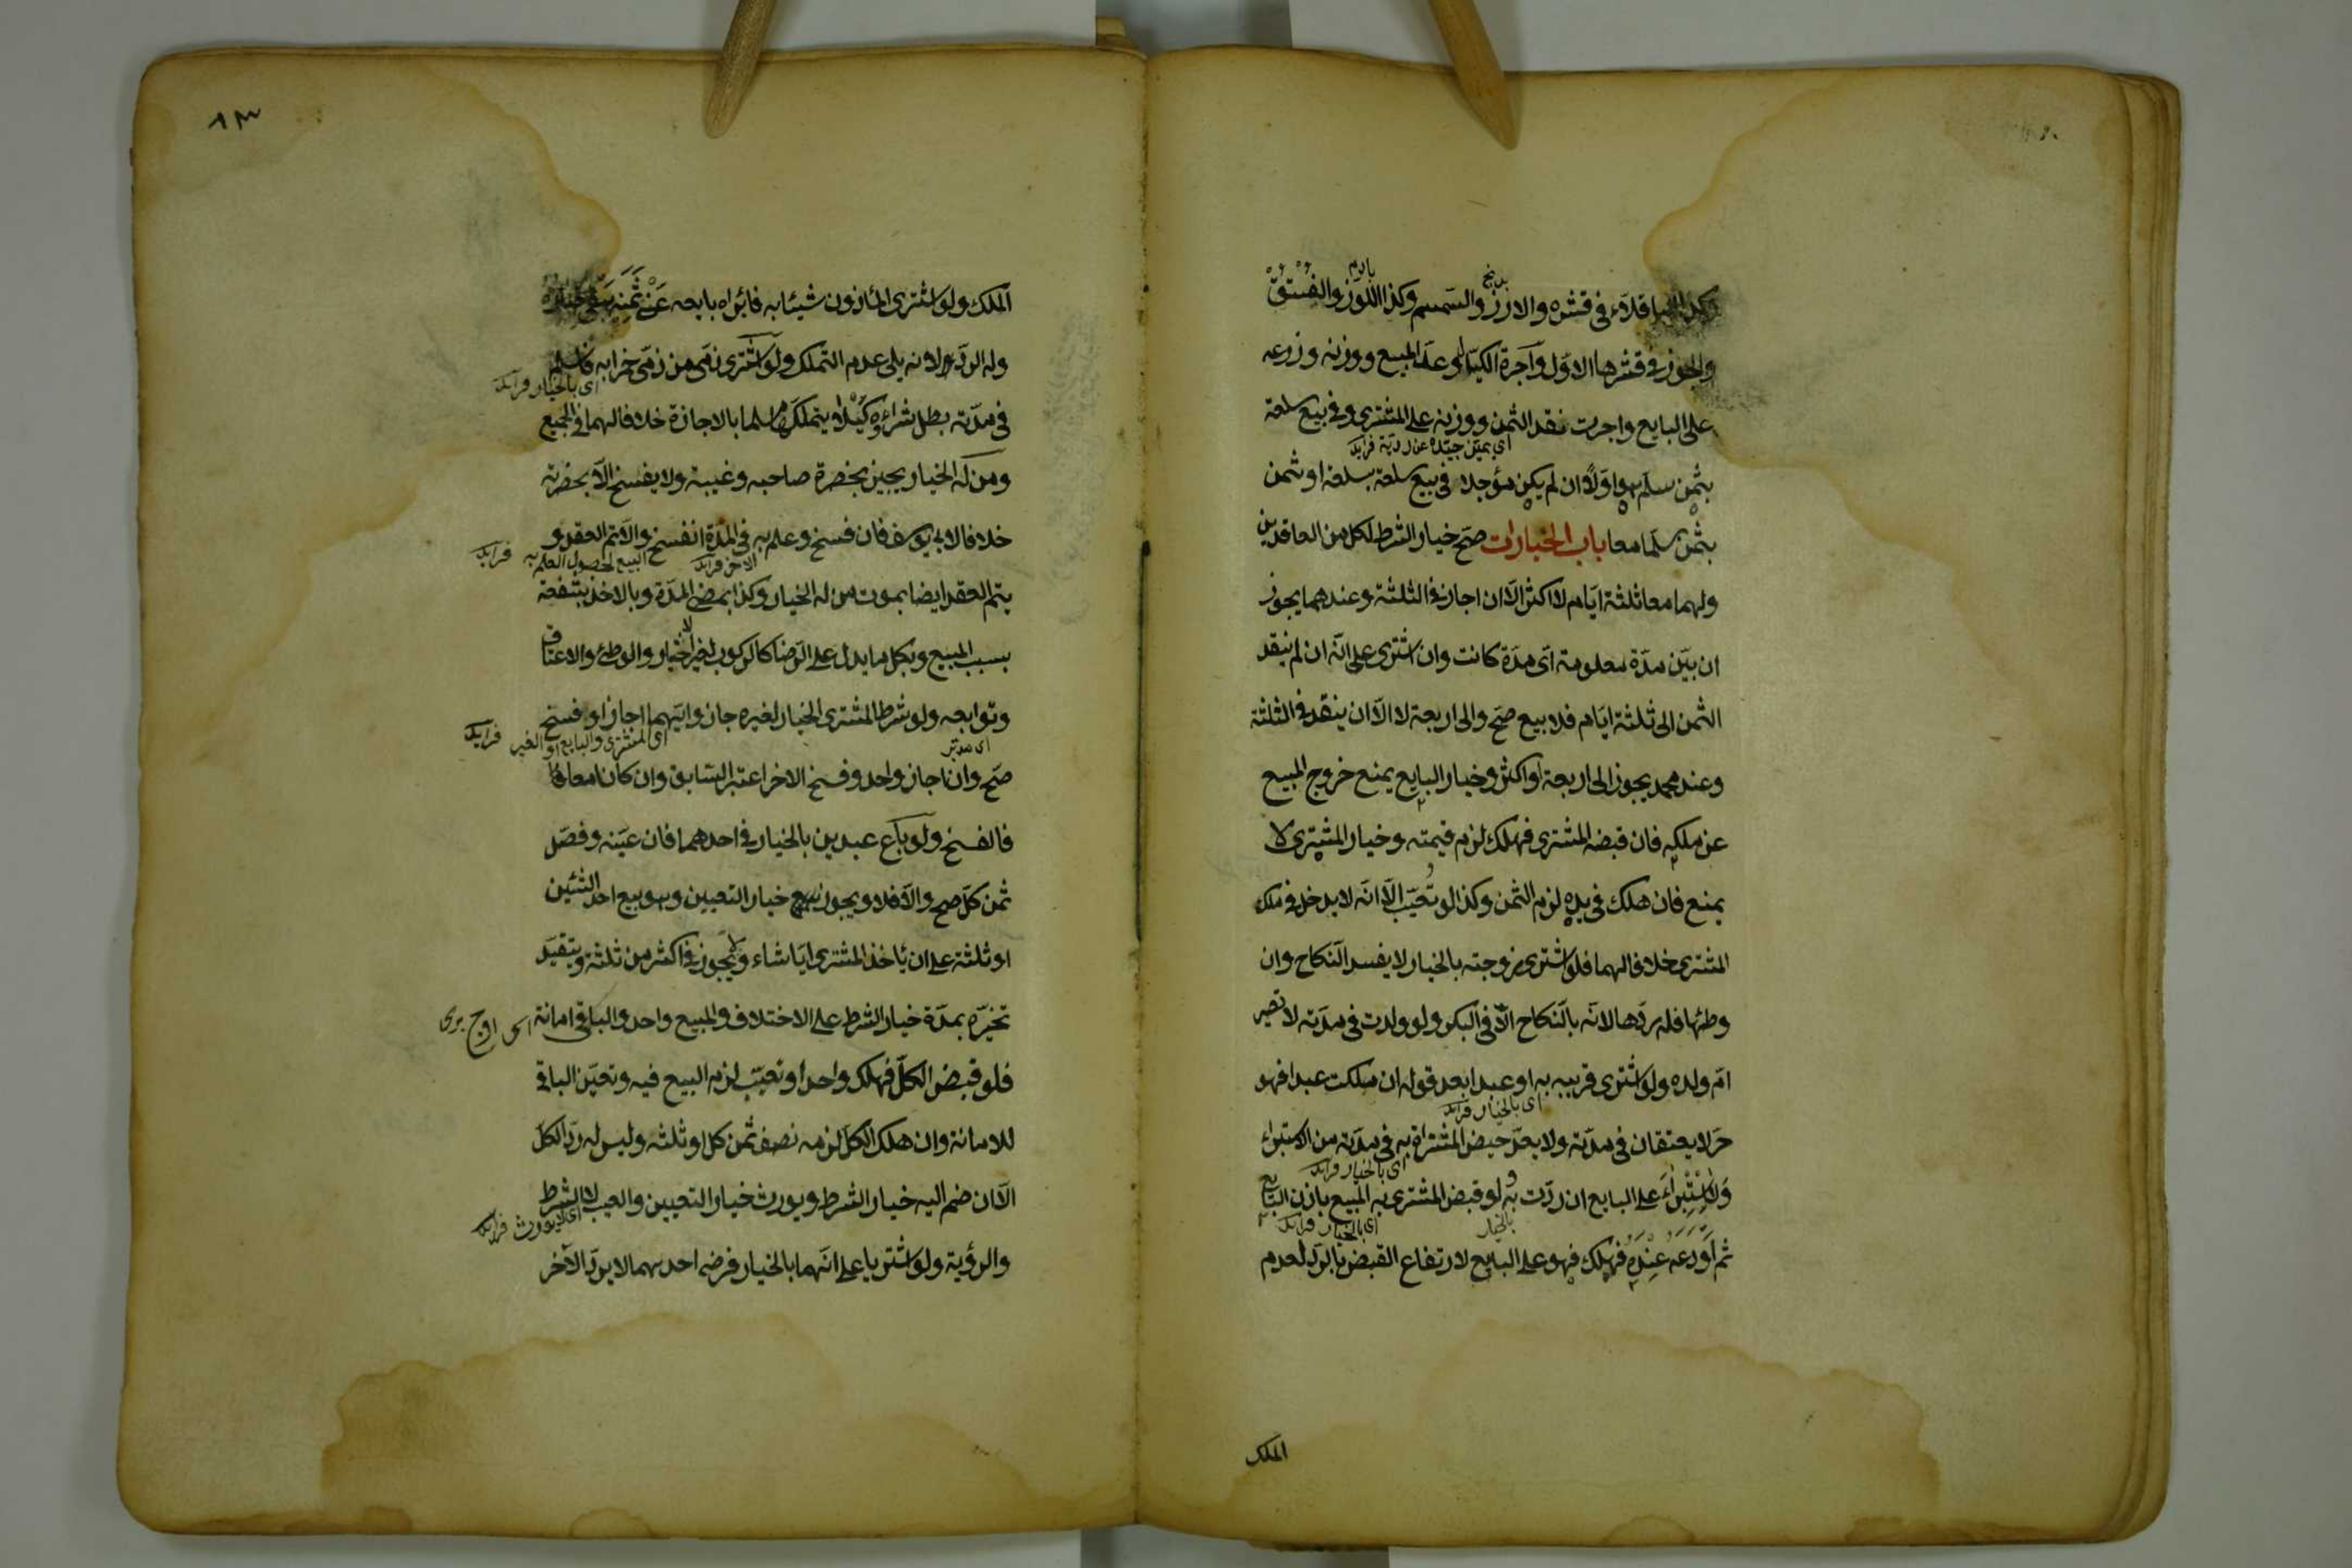 وكذا الباقلاء فى قشره والارز والسمسم وكذا اللوز والفستق
والجوز فى قشرها الاول واجرة الكيال وعد المبيع ووزنه وزرعه
على البايع واجرت نقد الثمن ووزنه على المشترى وفى بيع سلعة
اى بميز جيده عن رديه فرايد
بثمن سلم هو اولا ان لم يكن مؤجلا فى بيع سلعة بسلعة او ثمن
بثمن سلما معا باب الخيارات صح خيار الشرط لكل من العاقدين
ولهما معا ثلثة ايام لا اكثر الا ان اجاز فى الثلثة وعندهما يجوز
ان بين مدة معلومة اى مدة كانت وان اشترى على انه ان لم ينقد
الثمن الى ثلثة ايام فلا بيع صح والى اربعة لا الا ان ينقد فى الثلثة
وعند محمد يجوز الى اربعة او اكثر وخيار البايع يمنع خروج المبيع
عن ملكه فان قبضه المشترى فهلك لزم قيمته وخيار المشترى لا
يمنع فان هلك فى يده لزم الثمن وكذا لو تعيب الا انه لا يدخل فى ملك
المشترى خلافا لهما فلو اشترى زوجته بالخيار لا يفسد النكاح وان
وطئها فله ردها لانه بالنكاح الا فى البكر ولو ولدت فى مدته لا تصير
ام ولده ولو اشترى قريبه به او عبدا بعد قوله ان ملكت عبدا فهو
اى بالخيار فرايد
حر لا يعتقان فى مدته ولا يعد حيض المشتراة به فى مدته من الاستبراء
اى بالخيار فرايد
ولا استبراء على البايع ان ردت به ولو قبض المشترى به المبيع باذن البايع
بالخيار اى بالخيار فرايد
ثم اودعه عنده فهلك فهو على البايع لارتفاع القبض بالرد لعدم
الملك
٨٣
الملك ولو اشترى المأذون شيئا به فابراه بايعه عن ثمنه بقى خياره
وله الرد لانه يلى عدم التملك ولو اشترى ذمى من ذمى خمرا به فاسلم
اى بالخيار فرايد
فى مدته بطل شراؤه كيلا يتملكها مسلما بالاجازة خلافا لهما فى الجميع
ومن له الخيار يجيز بحضرة صاحبه وغيبة ولا يفسخ الا بحضرته
خلافا لابى يوسف فان فسخ وعلم به فى المدة انفسخ والا تم العقد و
الاخر فرايد البيع لحصول العلم به فرايد
يتم العقد ايضا بموت من له الخيار وكذا بمضى المدة وبالاخذ بشفعة
بسبب المبيع وبكل ما يدل على الرضا كالركوب لغير اختبار والوطئ والاعتاق
وتوابعه ولو شرط المشترى الخيار لغيره جاز وايهما اجاز او فسخ
اى مدبر اى المشترى والبايع او الغير فرايد
صح وان اجاز واحد وفسخ الاخر اعتبر السابق وان كانا معا
فالفسخ ولو باع عبدين بالخيار فى احدهما فان عينه وفصل
ثمن كل صح والا فلا ويجوز خيار التعيين وهو بيع احد الشيئين
او ثلثة على ان يأخذ المشترى ايا شاء ولا يجوز فى اكثر من ثلثة ويتقيد
تخيره بمدة خيار الشرط على الاختلاف والمبيع واحد والباقى امانة
فلو قبض الكل فهلك واحد او تعيب لزم البيع فيه وتعين الباقى
للامانة وان هلك الكل لزمه نصف ثمن كل او ثلثه وليس له رد الكل
الا ان ضم اليه خيار الشرط ويورث خيار التعيين والعيب لا الشرط
اى لا يورث فرايد
والرؤية ولو اشتريا على انهما بالخيار فرضى احدهما لا يرد الاخر